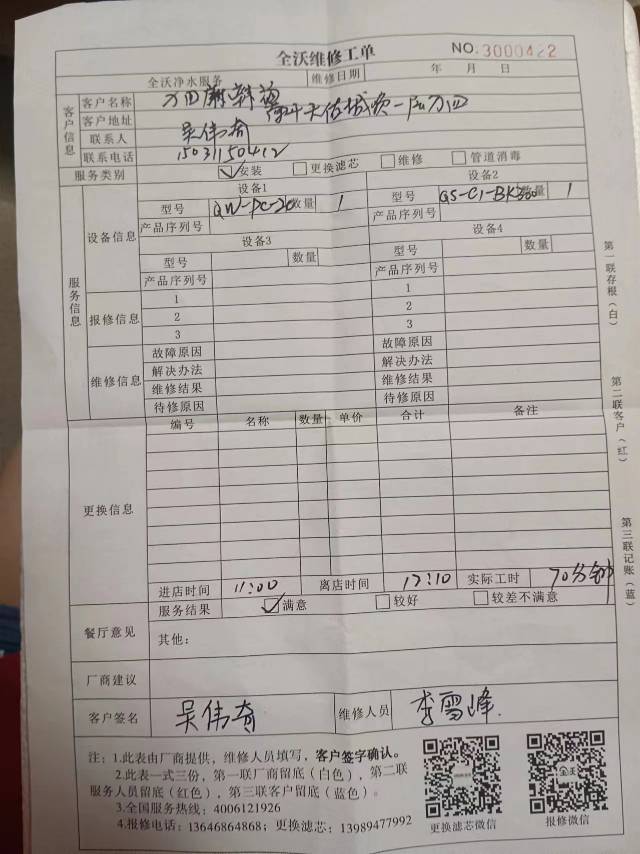 全沃维修工单
NO. 3000422
全沃净水服务 维修日期 年 月 日
客户信息
客户名称
客户地址
联系人 吴伟奇
联系电话 15031150412
服务类别 安装 更换滤芯 维修 管道消毒
服务信息
设备信息
设备1 设备2
型号 数量 1 型号 数量 1
产品序列号 产品序列号
设备3 设备4
型号 数量 型号 数量
产品序列号 产品序列号
报修信息
1 1
2 2
3 3
维修信息
故障原因 故障原因
解决办法 解决办法
维修结果 维修结果
待修原因 待修原因
更换信息
编号 名称 数量 单价 合计 备注
进店时间 11:00 离店时间 12:10 实际工时 70分钟
餐厅意见
服务结果 满意 较好 较差不满意
其他:
厂商建议
客户签名 吴伟奇 维修人员 李雪峰
注:1.此表由厂商提供,维修人员填写,客户签字确认。
2.此表一式三份,第一联厂商留底(白色),第二联
服务人员留底(红色),第三联客户留底(蓝色)。
3.全国服务热线:4006121926
4.报修电话:13646864868;更换滤芯:13989477992
更换滤芯微信 报修微信
第一联存根(白)
第二联客户(红)
第三联记账(蓝)